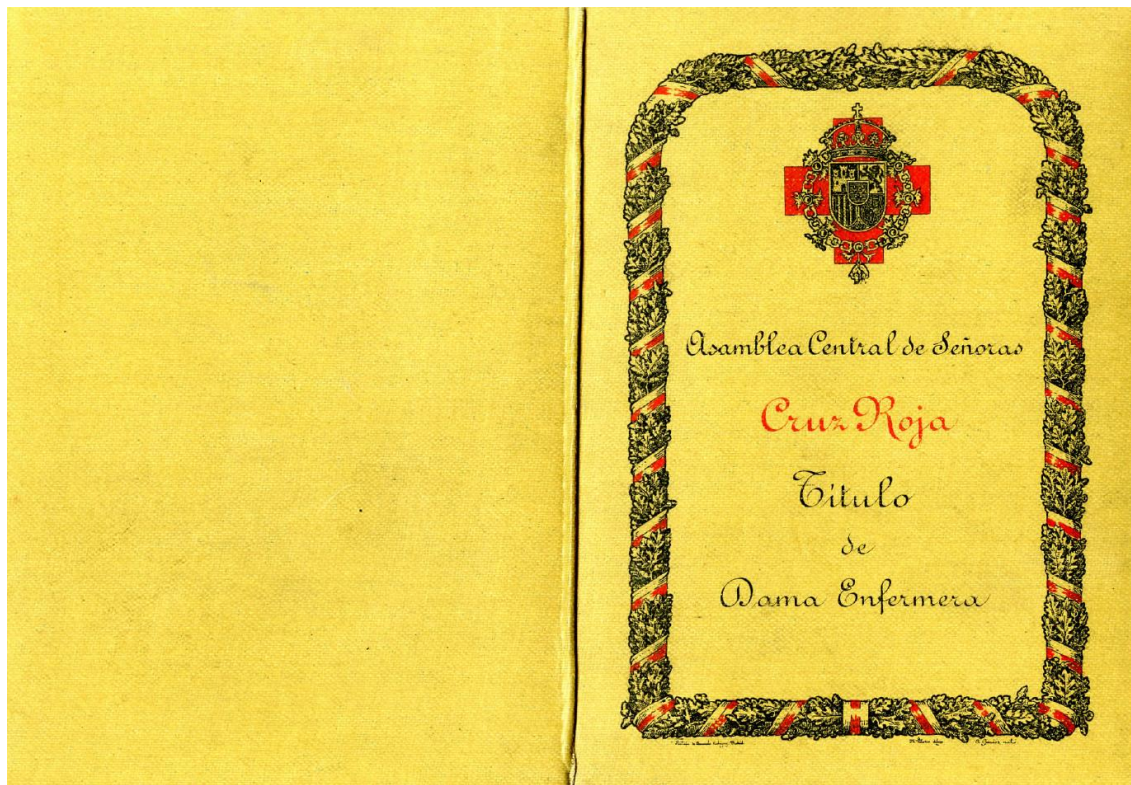 Asamblea Central de Señoras
Cruz Roja
Título
de
Dama Enfermera
Madrid